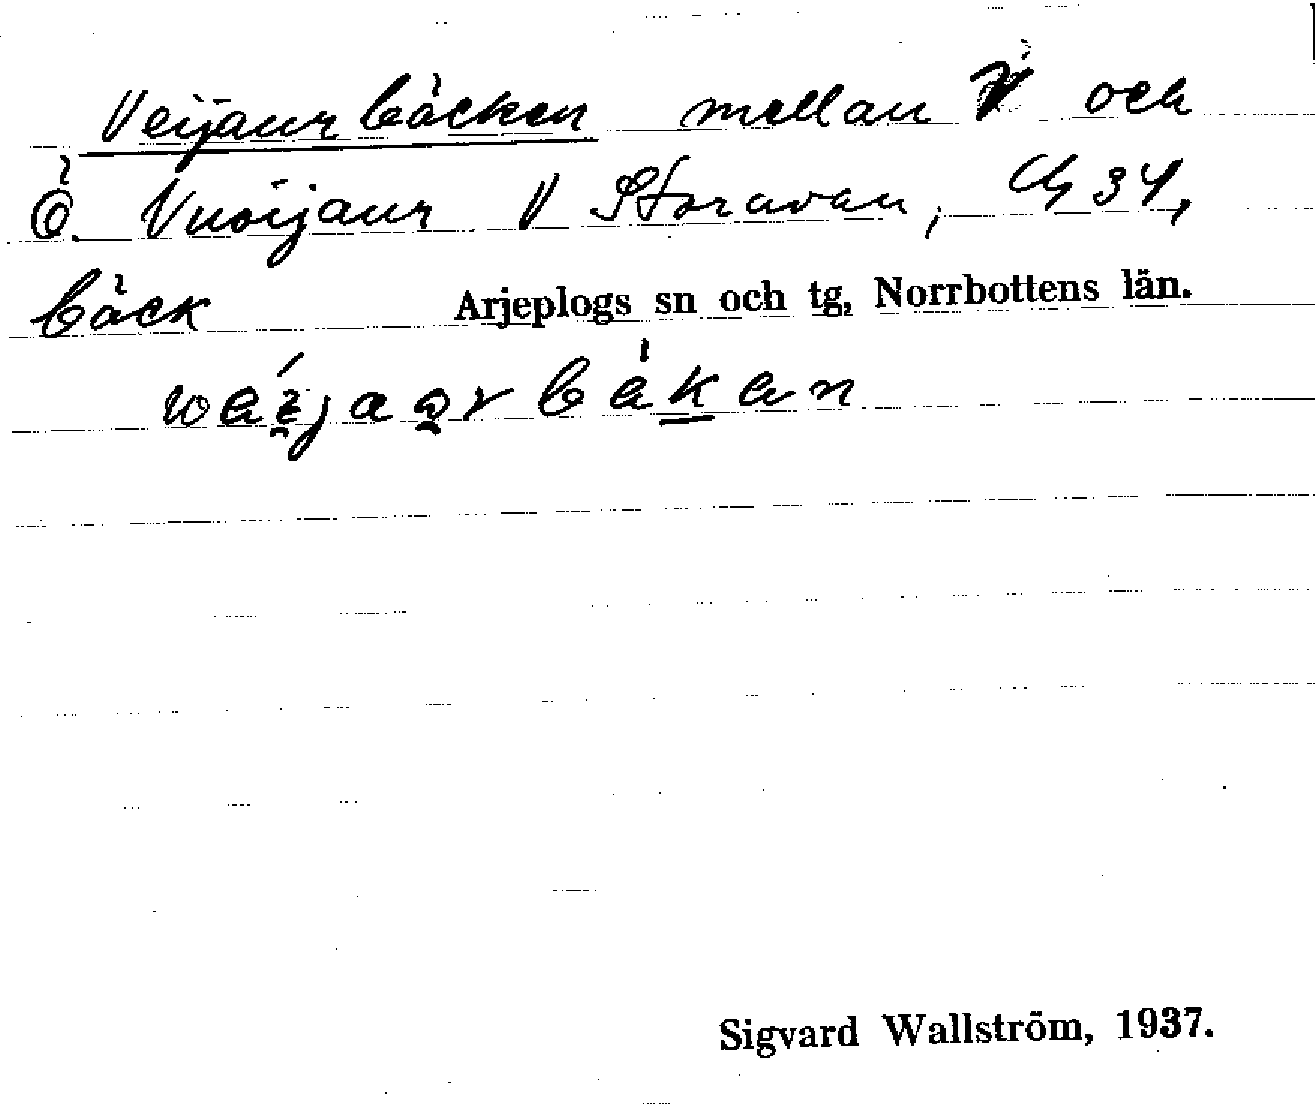 Veijaurbäcken mellan V och
Ö. Vuoijaur V Storavan, Cg 34,
bäck Arjeplogs sn och tg, Norrbottens län.
Sigvard Wallström, 1937.